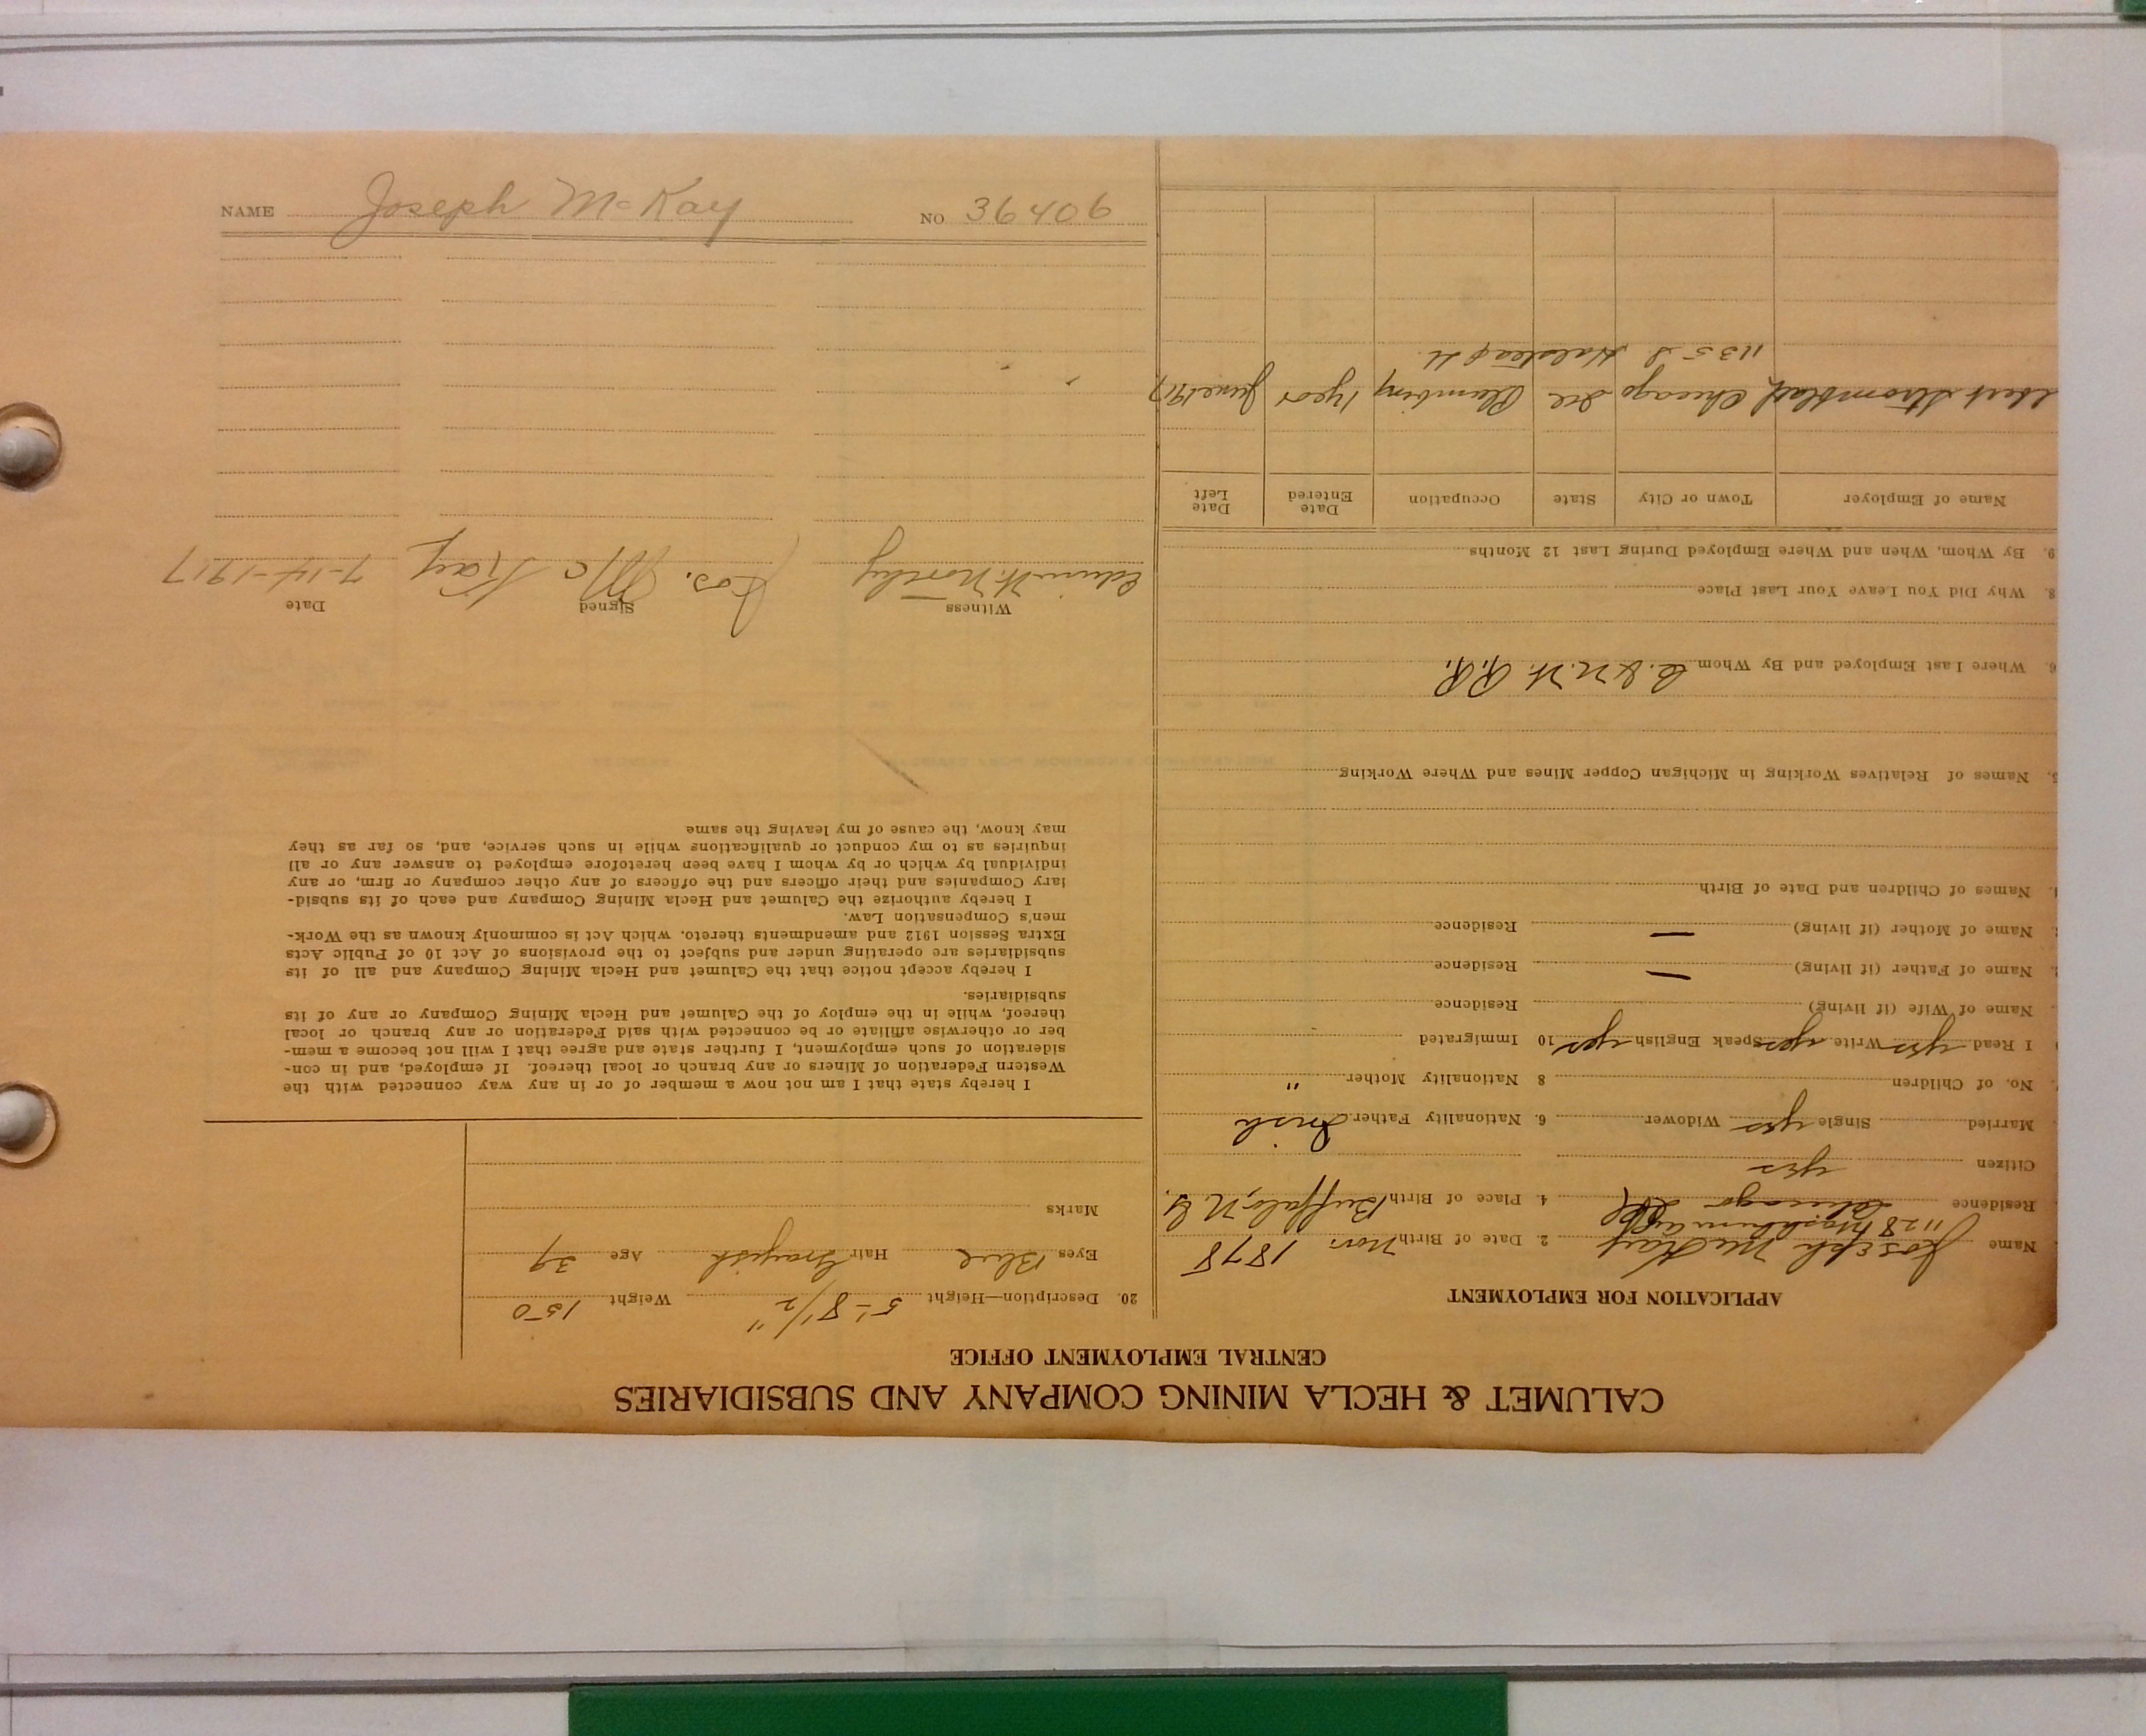 CALUMET & HECLA MINING COMPANY AND SUBSIDIARIES
CENTRAL EMPLOYMENT OFFICE
APPLICATION FOR EMPLOYMENT
Name Joseph McKay 2. Date of Birth Nov. 1878
1128 Washburn
Residence Chicago Ill 4. Place of Birth Buffalo, N.Y.
Citizen yes
Married Single yes Widower 6. Nationality Father Irish
No. of Children 8 Nationality Mother "
I Read yes Write yes Speak English yes 10 Immigrated
Name of Wife (if living) Residence
Name of Father (if living) — Residence
Name of Mother (if living) — Residence
Names of Children and Date of Birth
Names of Relatives Working in Michigan Copper Mines and Where Working
6. Where Last Employed and By Whom C. & N. W. R.R.
8. Why Did You Leave Your Last Place
9. By Whom, When and Where Employed During Last 12 Months
Name of Employer Town or City State Occupation Date Entered Date Left
Stromblad Chicago Ill Plumbing 1 year June 1917
1135 S. Halstead St.
20. Description—Height 5-8 1/2" Weight 150
Eyes Blue Hair Grayish Age 39
Marks
I hereby state that I am not now a member of or in any way connected with the
Western Federation of Miners or any branch or local thereof. If employed, and in con-
sideration of such employment, I further state and agree that I will not become a mem-
ber or otherwise affiliate or be connected with said Federation or any branch or local
thereof, while in the employ of the Calumet and Hecla Mining Company or any of its
subsidiaries.
I hereby accept notice that the Calumet and Hecla Mining Company and all of its
subsidiaries are operating under and subject to the provisions of Act 10 of Public Acts
Extra Session 1912 and amendments thereto, which Act is commonly known as the Work-
men's Compensation Law.
I hereby authorize the Calumet and Hecla Mining Company and each of its subsid-
iary Companies and their officers and the officers of any other company or firm, or any
individual by which or by whom I have been heretofore employed to answer any or all
inquiries as to my conduct or qualifications while in such service, and, so far as they
may know, the cause of my leaving the same
Witness Signed Date
Edwin Jos. McKay 7-14-1917
NAME Joseph McKay NO 36406